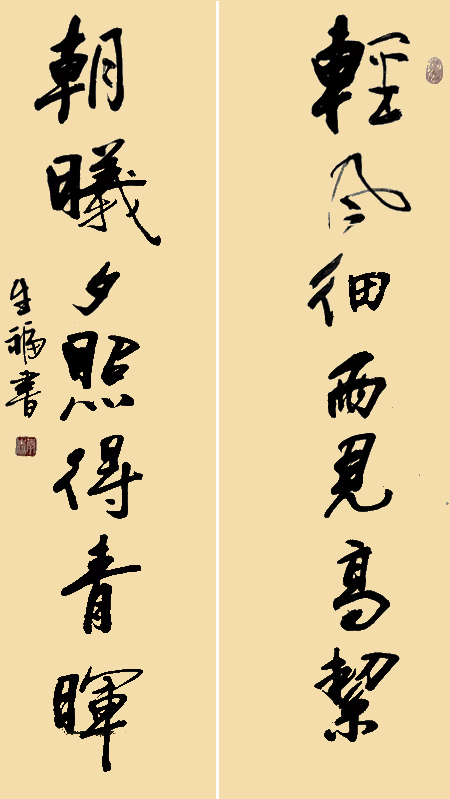 輕風細雨見高絜
朝曦夕照得青暉
生福書